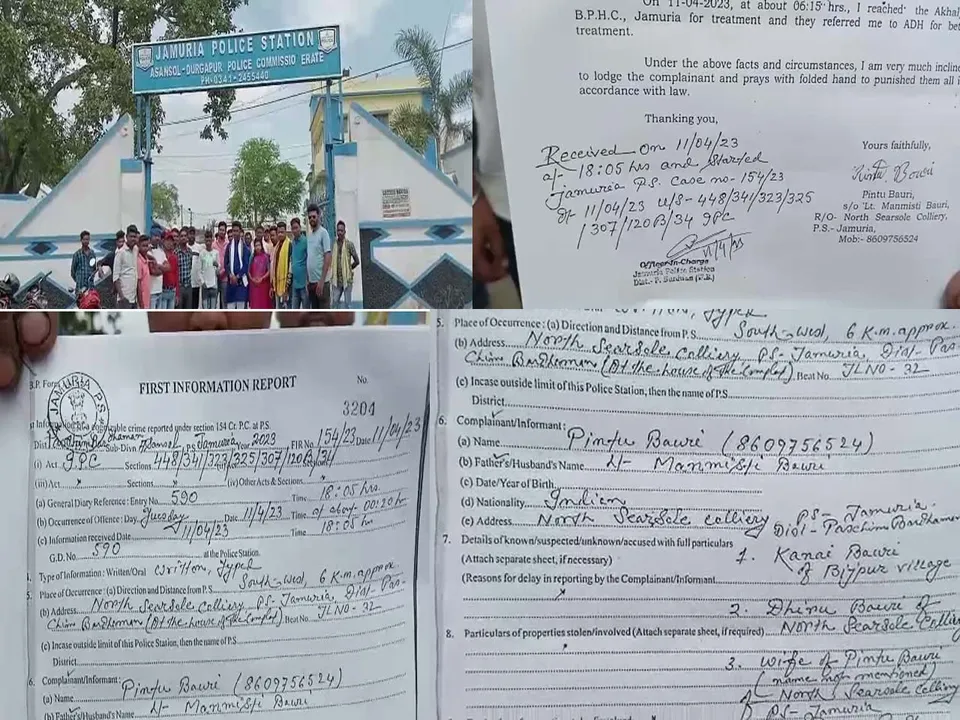 JAMURIA POLICE STATION
ASANSOL-DURGAPUR POLICE COMMISSIO ERATE
PH-0341-2455440
On 11-04-2023, at about 06:15 hrs., I reached the Akhal
B.P.H.C., Jamuria for treatment and they referred me to ADH for bet
treatment.
Under the above facts and circumstances, I am very much incline
to lodge the complainant and prays with folded hand to punished them all i
accordance with law.
Thanking you,
Yours faithfully,
Pintu Bauri
Pintu Bauri,
s/o Lt. Manmisti Bauri,
R/O- North Searsole Colliery,
P.S.- Jamuria,
Mob:- 8609756524
Received on 11/04/23
at 18:05 hrs and started
Jamuria P.S. Case no- 154/23
dt 11/04/23 U/S- 448/341/323/325
/307/120B/34 IPC
11/4/23
Officer-In-Charge
Jamuria Police Station
JAMURIA P.S.
FIRST INFORMATION REPORT
No.
3204
cognizable crime reported under section 154 Cr. P.C. at P.S.
Sub-Divn Asansol P.S. Jamuria Year 2023 FIR No 154/23 Date 11/04/23
(i) Act IPC Sections 448/341/323/325/307/120B/34
(iii) Act x Sections x (iv) Other Acts & Sections x
(a) General Diary Reference : Entry No. 590 Time 18:05 hrs.
(b) Occurrence of Offence : Day Tuesday Date 11/4/23 Time at about 00:20 hr
(c) Information received Date 11/04/23 Time 18:05 hr
G.D. No. 590 at the Police Station.
Type of Information : Written/Oral Written, Typed
5. Place of Occurrence : (a) Direction and Distance from P.S. South-West, 6 K.m. approx.
(b) Address North Searsole Colliery PS-Jamuria, Dist- Pas-
chim Bardhaman (At the house of the Complt) Beat No. JLNO-32
(c) Incase outside limit of this Police Station, then the name of P.S
District
6. Complainant/Informant :
(a) Name Pintu Bauri (8609756524)
(b) Father's/Husband's Name Lt- Manmisti Bauri
5. Place of Occurrence : (a) Direction and Distance from P.S. South-West, 6 K.m. approx.
(b) Address North Searsole Colliery, PS-Jamuria, Dist- Pas-
chim Bardhaman (At the house of the Complt) Beat No. JLNO-32
(c) Incase outside limit of this Police Station, then the name of P.S
District
6. Complainant/Informant :
(a) Name Pintu Bauri (8609756524)
(b) Father's/Husband's Name Lt- Manmisti Bauri
(c) Date/Year of Birth
(d) Nationality Indian
(e) Address North Searsole Colliery PS- Jamuria
Dist- Paschim Bardhaman
7. Details of known/suspected/unknown/accused with full particulars
(Attach separate sheet, if necessary)
1. Kanai Bauri
of Bijpur village
(Reasons for delay in reporting by the Complainant/Informant
x
2. Dhinu Bauri of
North Searsole Colliery
8. Particulars of properties stolen/involved (Attach separate sheet, if required)
3. wife of Pintu Bauri
(name not mentioned)
of North Searsole Colliery
PS- Jamuria